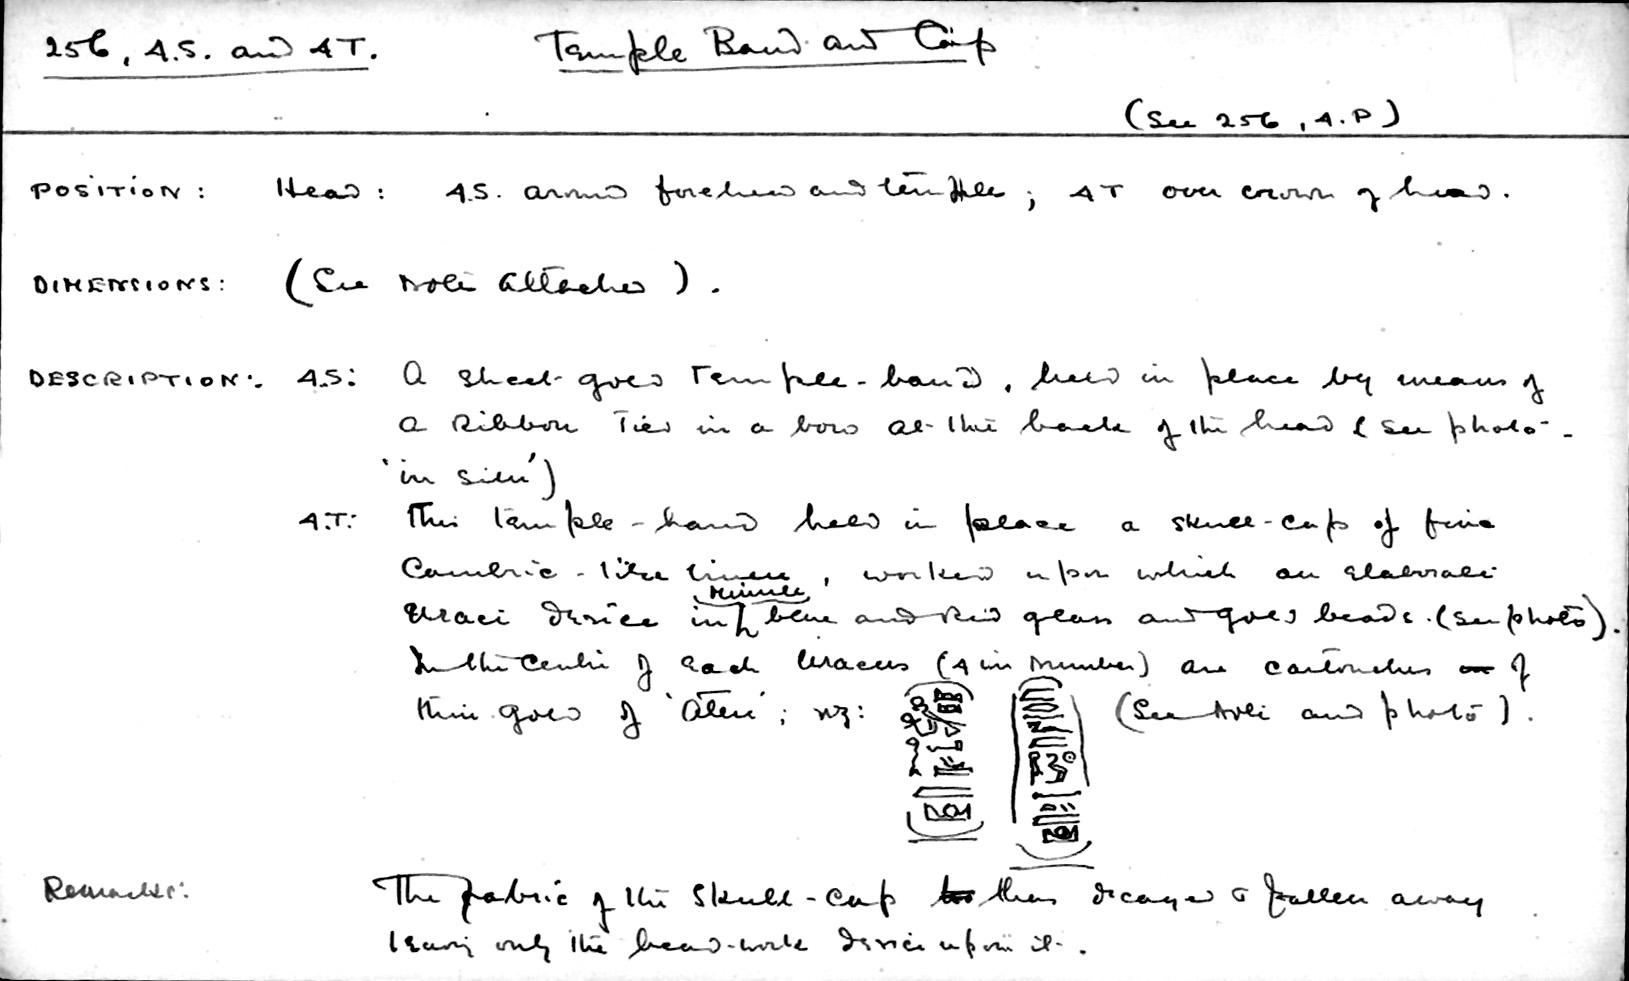 256, A.S. and AT. Temple Band and Cap
(See 256, A.P)
POSITION: Head: A.S. around forehead and temples; AT over crown of head.
DIMENSIONS: (See Note attached).
DESCRIPTION: A.S: A sheet-gold Temple-band, held in place by means of
a Ribbon Tied in a bow at the back of the head (See photo-
'in situ')
A.T: This temple-band held in place a skull-cap of fine
Cambric-like linen, worked upon which an elaborate
minute
Uraei device in blue and Red glass and gold beads. (see photo).
In the Centre of each Uraeus (4 in number) are cartouches of
thin gold of 'Aten'; viz: (See Note and photo).
Remarks: The fabric of the Skull-cap has decayed & fallen away
leaving only the bead-work device upon it.